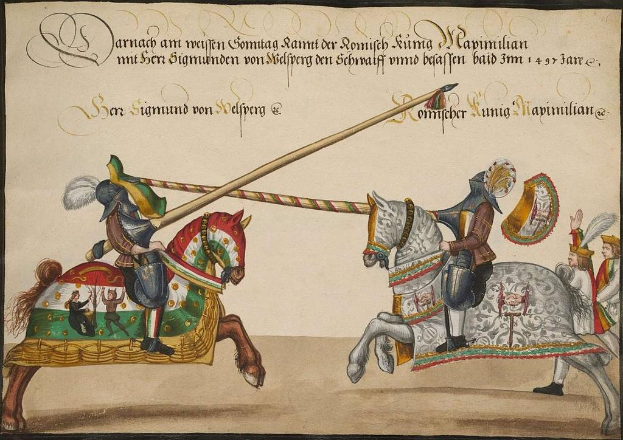 Darnach am weissen Sonntag Rannt der Romisch Kunig Maximilian
mit Herr Sigmunden von Welsperg den Schwaiff unnd besassen baid Inn 1497 Jare
Herr Sigmund von Welsperg
Romischer Kunig Maximilian